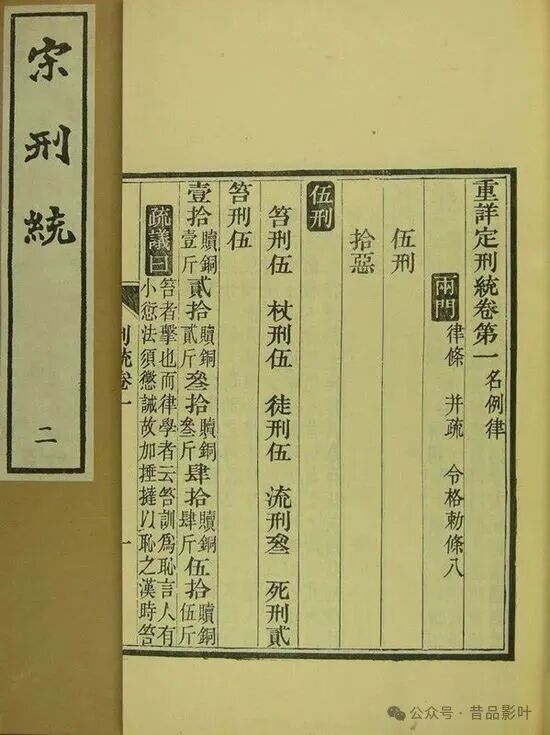 宋刑統
二
重詳定刑統卷第一 名例律
兩門 律條 并疏 令格勅條八
伍刑
拾惡
伍刑
笞刑伍 杖刑伍 徒刑伍 流刑叄 死刑貳
笞刑伍
壹拾贖銅壹斤貳拾贖銅貳斤叄拾贖銅叄斤肆拾贖銅肆斤伍拾贖銅伍斤
疏議曰笞者擊也而律學者云笞訓爲恥言人有
小愆法須懲誡故加捶撻以恥之漢時笞
刑統卷一
一
公众号·昔品影叶